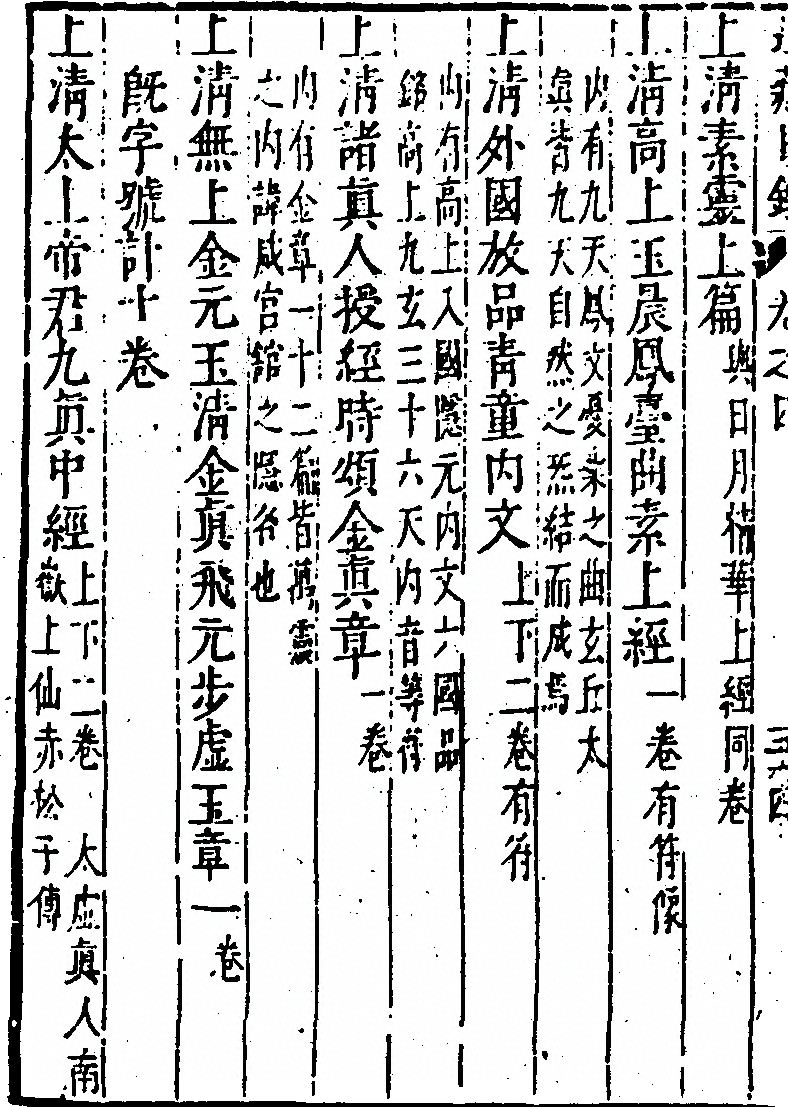 道藏目錄 卷之四 三六四
上清素靈上篇 與日月精華上經同卷
上清高上玉晨鳳臺曲素上經 一卷有符像
內有九天鳳文憂樂之曲玄丘太
真皆九天自然之炁結而成焉
上清外國放品青童內文 上下二卷有符
內有高上八國隱元內文六國品
銘高上九玄三十六天內音等符
上清諸真人授經時頌金真章 一卷
內有金章一十二篇皆萬靈
之內諱咸宮館之隱名也
上清無上金元玉清金真飛元步虛玉章 一卷
既字號計十卷
上清太上帝君九真中經 上下二卷 太虛真人南
嶽上仙赤松子傳